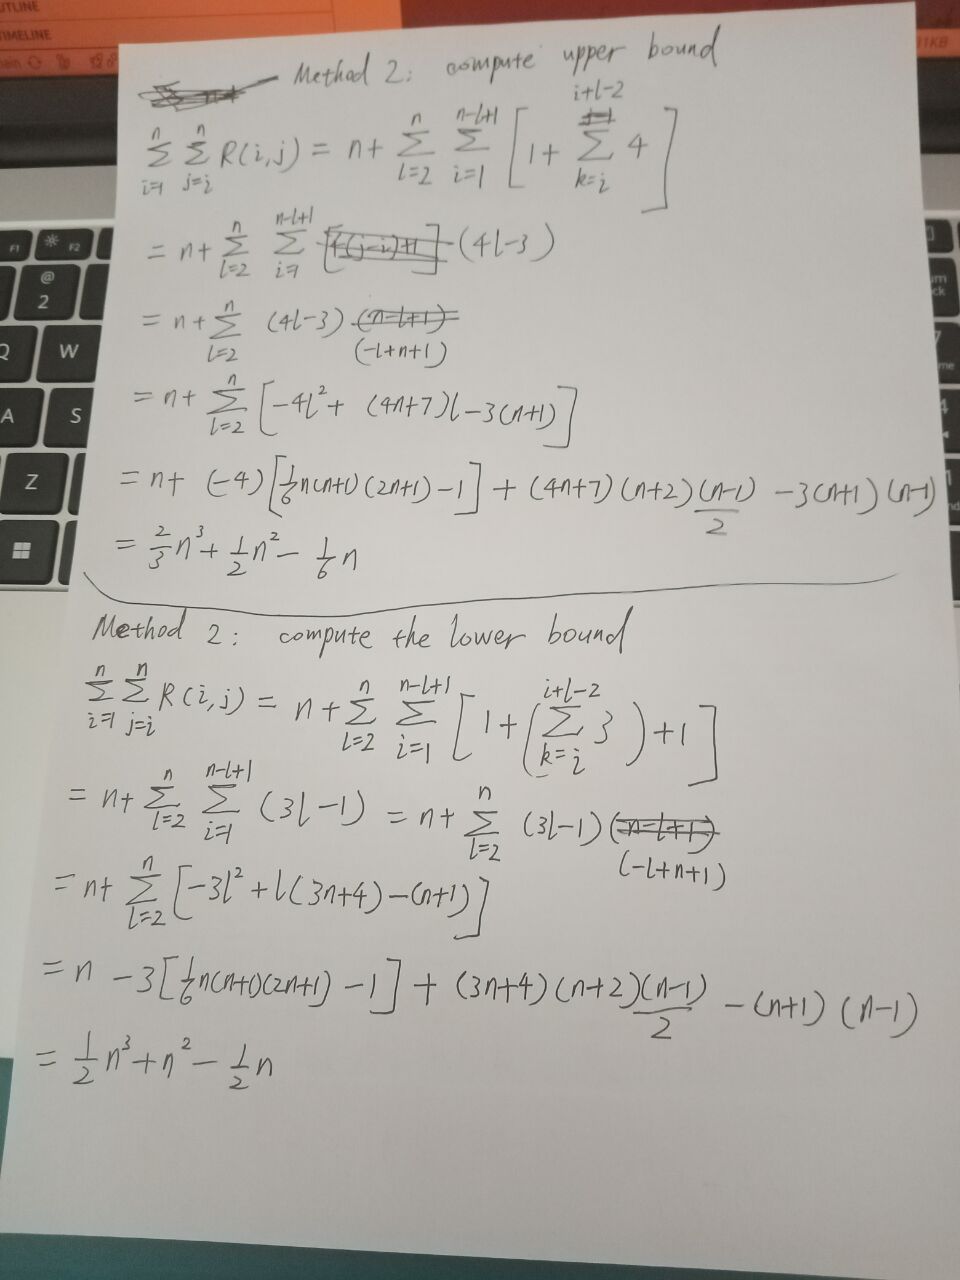 UTLINE
TIMELINE
11KB
Method 2: compute upper bound
\sum_{i=1}^{n} \sum_{j=i}^{n} R(i,j) = n + \sum_{l=2}^{n} \sum_{i=1}^{n-l+1} [1 + \sum_{k=i}^{i+l-2} 4]
= n + \sum_{l=2}^{n} \sum_{i=1}^{n-l+1} (4l-3)
= n + \sum_{l=2}^{n} (4l-3) (-l+n+1)
= n + \sum_{l=2}^{n} [-4l^2 + (4n+7)l - 3(n+1)]
= n + (-4)[\frac{1}{6}n(n+1)(2n+1) - 1] + (4n+7)(n+2)\frac{(n-1)}{2} - 3(n+1)(n-1)
= \frac{2}{3}n^3 + \frac{1}{2}n^2 - \frac{1}{6}n
Method 2: compute the lower bound
\sum_{i=1}^{n} \sum_{j=i}^{n} R(i,j) = n + \sum_{l=2}^{n} \sum_{i=1}^{n-l+1} [1 + (\sum_{k=i}^{i+l-2} 3) + 1]
= n + \sum_{l=2}^{n} \sum_{i=1}^{n-l+1} (3l-1) = n + \sum_{l=2}^{n} (3l-1) (-l+n+1)
= n + \sum_{l=2}^{n} [-3l^2 + l(3n+4) - (n+1)]
= n - 3[\frac{1}{6}n(n+1)(2n+1) - 1] + (3n+4)(n+2)\frac{(n-1)}{2} - (n+1)(n-1)
= \frac{1}{2}n^3 + n^2 - \frac{1}{2}n
F1
F2
@
2
Q
W
A
S
Z